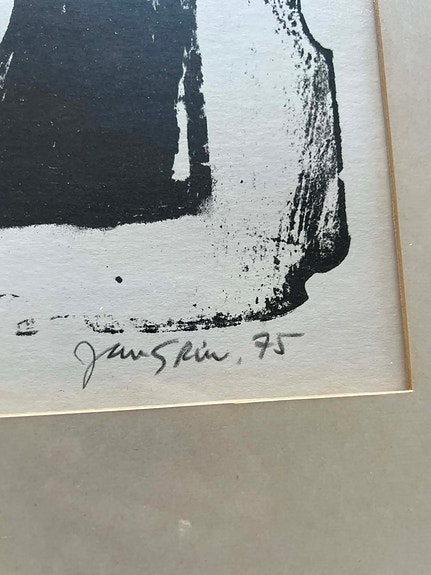 Jansrin, 75